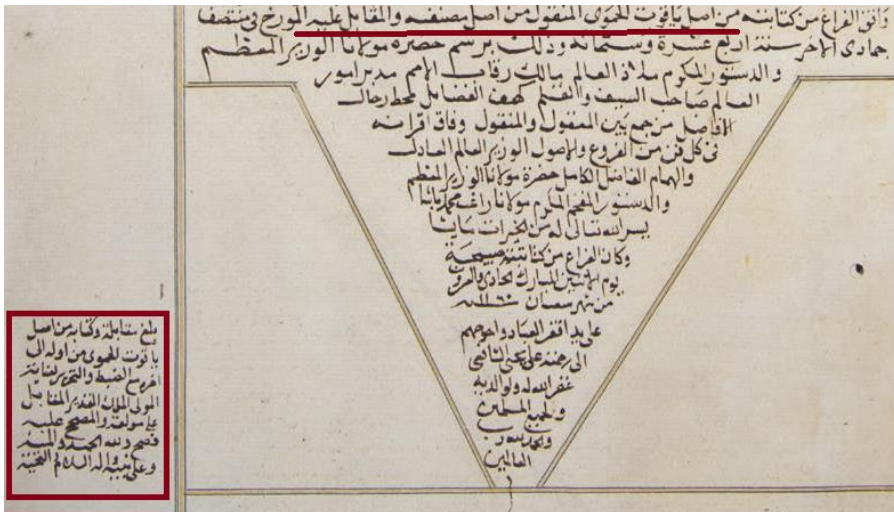 وافق الفراغ من كتابته من اصل ياقوت الحموى المنقول من اصل مصنفه والمقابل عليه المورخ فى منتصف
جمادى الاخر سنة اربع عشرة وستمائة وذلك برسم حضرة مولانا الوزير المعظم
والدستور المكرم ملاذ العالم مالك رقاب الامم مدبر امور
العالم صاحب السيف والقلم كهف الفضايل محط رحال
الافاضل من جمع بين المعقول والمنقول وفاق اقرانه
فى كل فن من الفروع والاصول الوزير العالم العادل
والهمام الفاضل الكامل حضرة مولانا الوزير المعظم
والدستور المفخم المكرم مولانا راغب محمد باشا
يسر الله تعالى له من الخيرات ما يشا
وكان الفراغ من كتابته صبيحة
يوم الاثنين المبارك الحادى والعشرون
من شهر شعبان
على يد افقر العباد واحوجهم
الى رحمته على يحيى الشافعى
غفر الله له ولوالديه
ولجميع المسلمين
والحمد لله رب
العالمين
بلغ مقابلة وكتابه من اصل
ياقوت الحموى من اوله الى
اخره مع الضبط والتحرير
على مولفه والمصحح عليه
فصح ولله الحمد والمنه
وعلى نبيه واله السلام